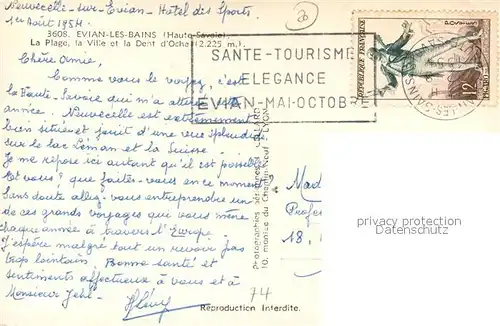 Neuvecelle-sur-Evian-Hotel des Sports
1er Août 1954
3608. EVIAN-LES-BAINS (Haute-Savoie)
La Plage, la Ville et la Dent d'Oche (2.225 m.)
Chère Amie,
Comme vous le voyez, c'est
la Haute-Savoie qui m'a attiré cette
année. Neuvecelle est extrêmement
bien située et jouit d'une vue splendide
sur le lac Léman et la Suisse.
Je me repose ici autant qu'il est possible
Et vous? que faites-vous en ce moment?
Sans doute allez-vous entreprendre un
de ces grands voyages qui vous mène
chaque année à travers l'Europe.
J'espère malgré tout un revoir pas
trop lointain. Bonne santé et
sentiments affectueux à vous et à
Monsieur
SANTE-TOURISME
ELEGANCE
EVIAN-MAI-OCTOBRE
REPUBLIQUE FRANÇAISE
POSTES
12F
Photographies aériennes
10, montée du Chemin Neuf - LYON
Mad
Profes
18,
74
Reproduction Interdite.
privacy protection
watermark